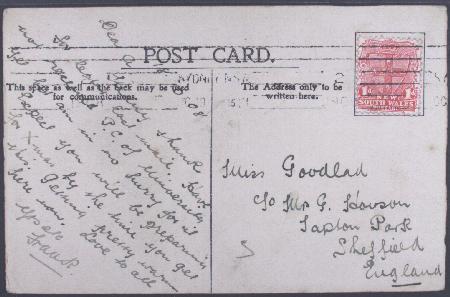 POST CARD.
This space as well as the back may be used
for communications.
The Address only to be
written here.
SYDNEY
NEW
SOUTH WALES
1d 1d
08
Many thanks
for
P.C. of University
am in no hurry for it
expect you will be preparing
for Xmas by the time you get
this. Getting pretty warm
here now. Love to all
Yrs
Frank.
Miss Goodlad
c/o Mr G. Howson
Sapton Park
Sheffield
England